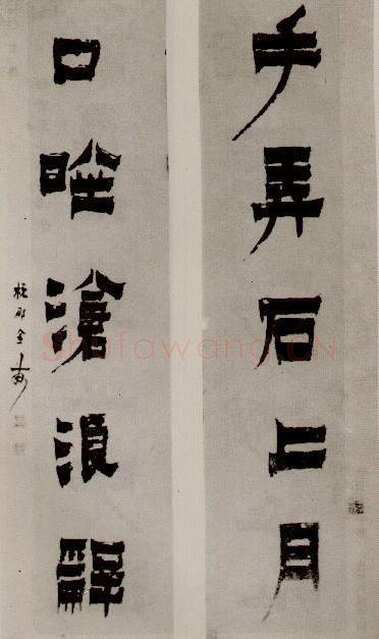 手弄石上月
口滄浪辭
杭郡金農
Shufawang.CN